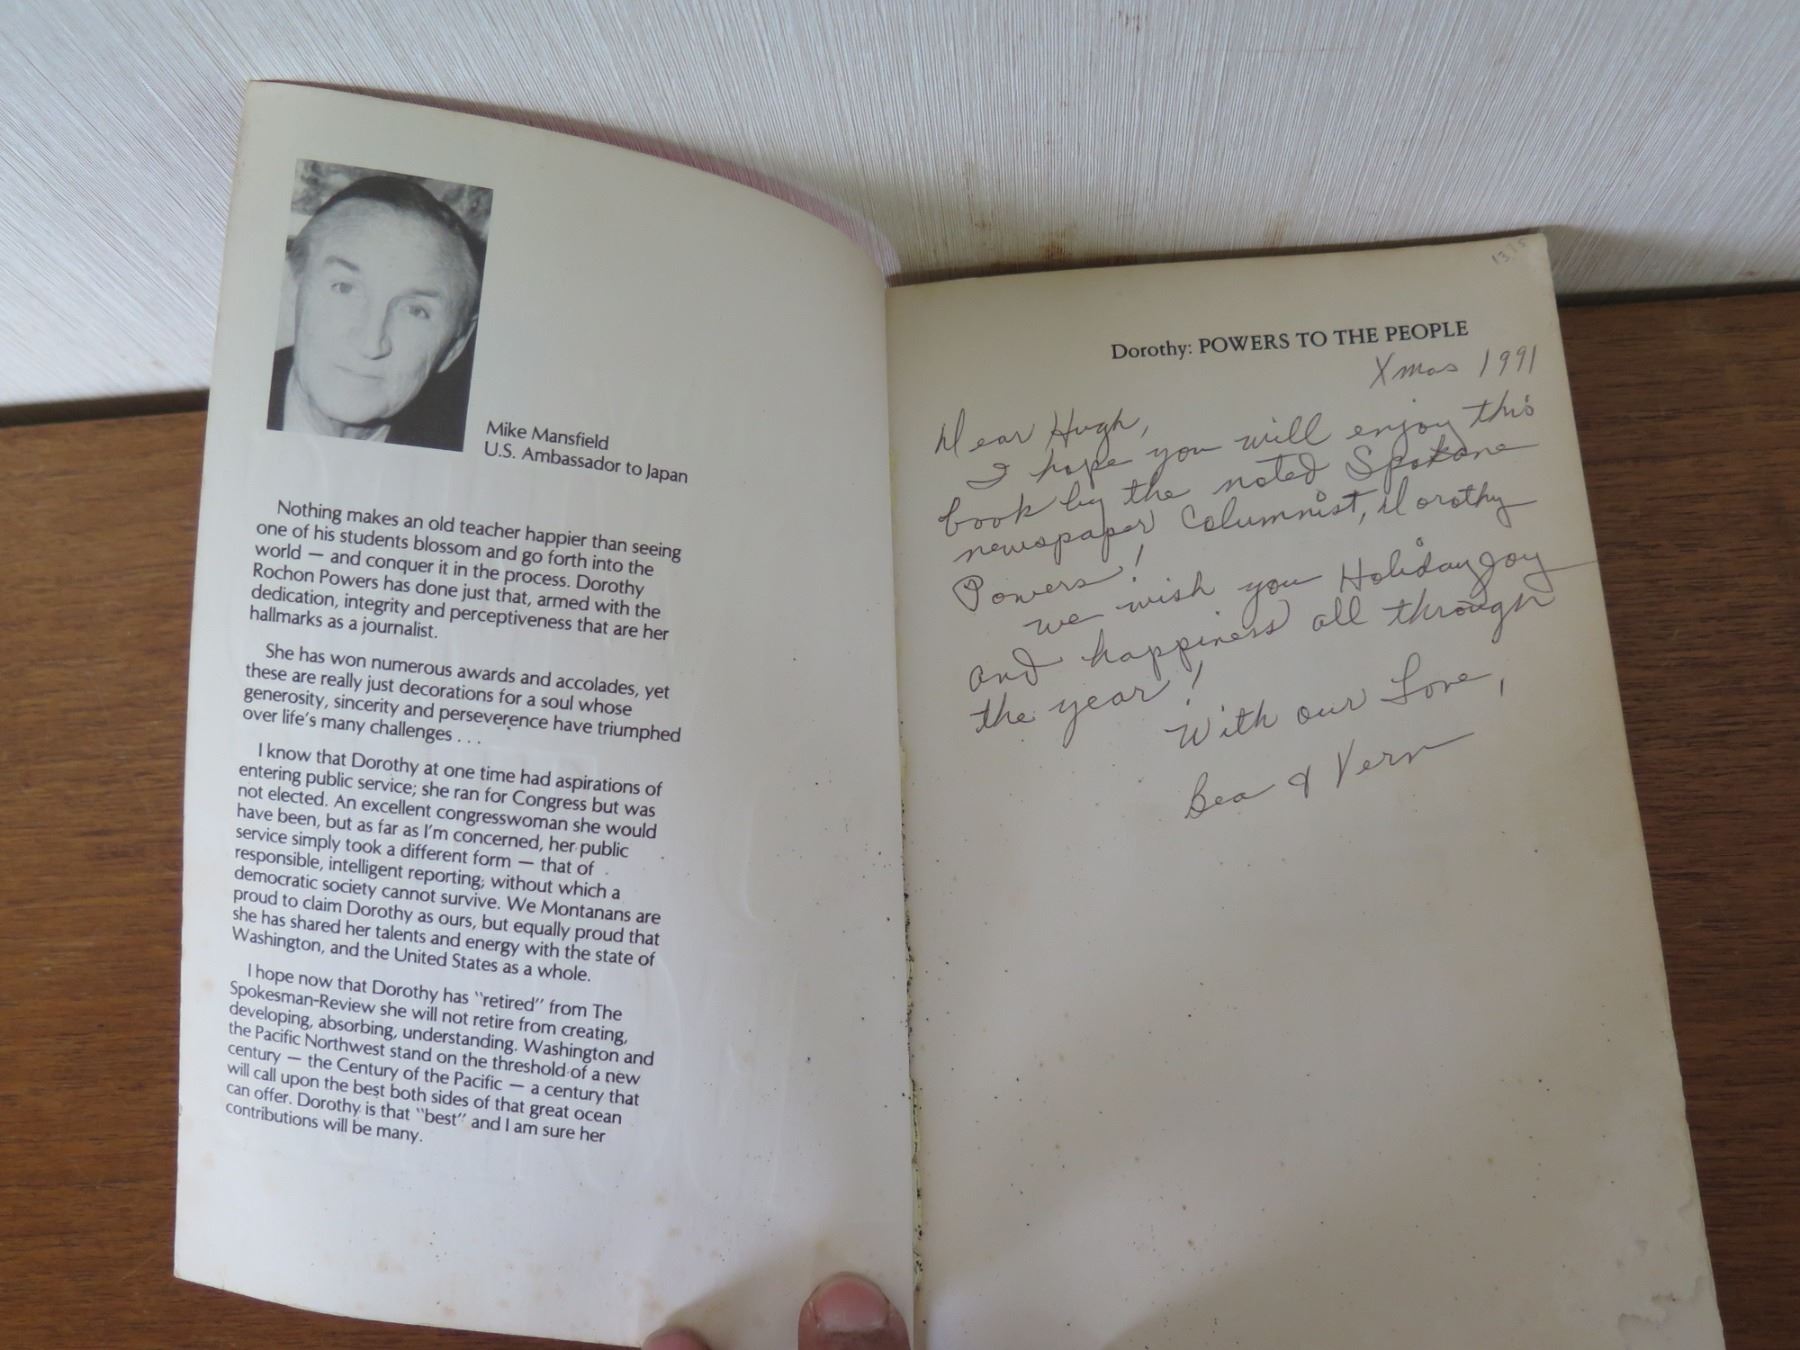 Mike Mansfield
U.S. Ambassador to Japan
Nothing makes an old teacher happier than seeing
one of his students blossom and go forth into the
world — and conquer it in the process. Dorothy
Rochon Powers has done just that, armed with the
dedication, integrity and perceptiveness that are her
hallmarks as a journalist.
She has won numerous awards and accolades, yet
these are really just decorations for a soul whose
generosity, sincerity and perseverence have triumphed
over life's many challenges . . .
I know that Dorothy at one time had aspirations of
entering public service; she ran for Congress but was
not elected. An excellent congresswoman she would
have been, but as far as I'm concerned, her public
service simply took a different form — that of
responsible, intelligent reporting; without which a
democratic society cannot survive. We Montanans are
proud to claim Dorothy as ours, but equally proud that
she has shared her talents and energy with the state of
Washington, and the United States as a whole.
I hope now that Dorothy has "retired" from The
Spokesman-Review she will not retire from creating,
developing, absorbing, understanding. Washington and
the Pacific Northwest stand on the threshold of a new
century — the Century of the Pacific — a century that
will call upon the best both sides of that great ocean
can offer. Dorothy is that "best" and I am sure her
contributions will be many.
13.75
Dorothy: POWERS TO THE PEOPLE
Xmas 1991
Dear Hugh,
I hope you will enjoy this
book by the noted Spokane
newspaper Columnist, Dorothy
Powers!
We wish you Holiday Joy
and happiness all through
the year!
With our Love,
Bea & Vern